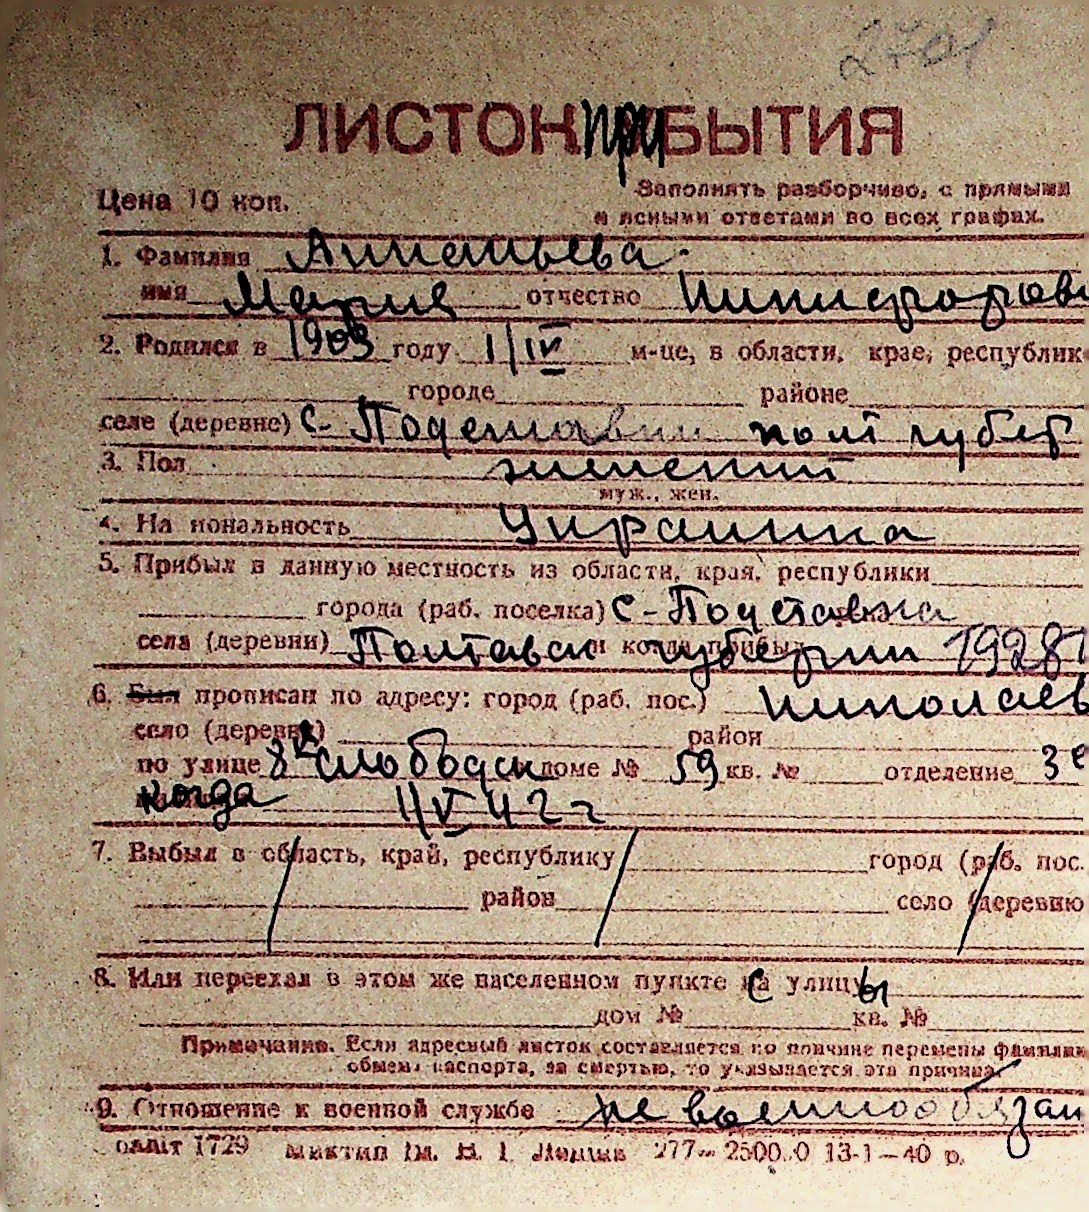 270
ЛИСТОК при БЫТИЯ
Цена 10 коп.
Заполнять разборчиво, с прямыми
и ясными ответами во всех графах.
1. Фамилия
имя Мария отчество Никифоровн
2. Родился в 1903 году 1/IV м-це, в области, крае, республик
городе районе
селе (деревне) с. полт губер
3. Пол женский
муж., жен.
4. Национальность Украинка
5. Прибыл в данную местность из области, края, республики
города (раб. поселка) с- Подставка
села (деревни) Полтавск и когда прибыл губернии 1928
6. Был прописан по адресу: город (раб. пос.) Николаев
село (деревня) район
по улице 8я слободск доме № 59 кв. № отделение 3е
когда 1/V 42 г
7. Выбыл в область, край, республику город (раб. пос.
район село (деревню
8. Или переехал в этом же населенном пункте с улицы
дом № кв. №
Примечание. Если адресный листок составляется по причине перемены фамилии
обмена паспорта, за смертью, то указывается эта причина.
9. Отношение к военной службе не военнообязан
1729 277— 13-1—40 р.